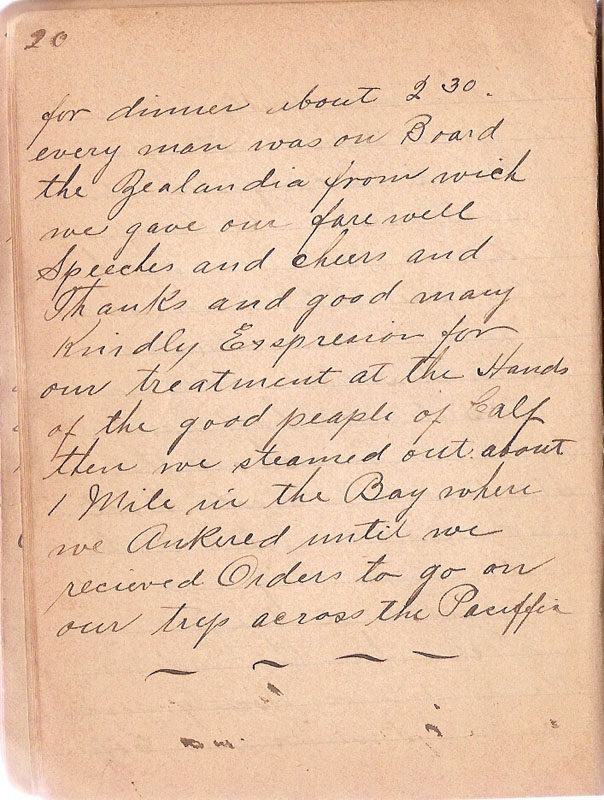 20
for dinner about 2 30.
every man was on Board
the Zealandia from wich
we gave our fare well
Speeches and cheers and
Thanks and good many
Kindly Exspresion for
our treatment at the Hands
of the good peaple of Calf
then we steamed out about
1 Mile in the Bay where
we Ankered until we
recieved Orders to go on
our trip across the Paciffic